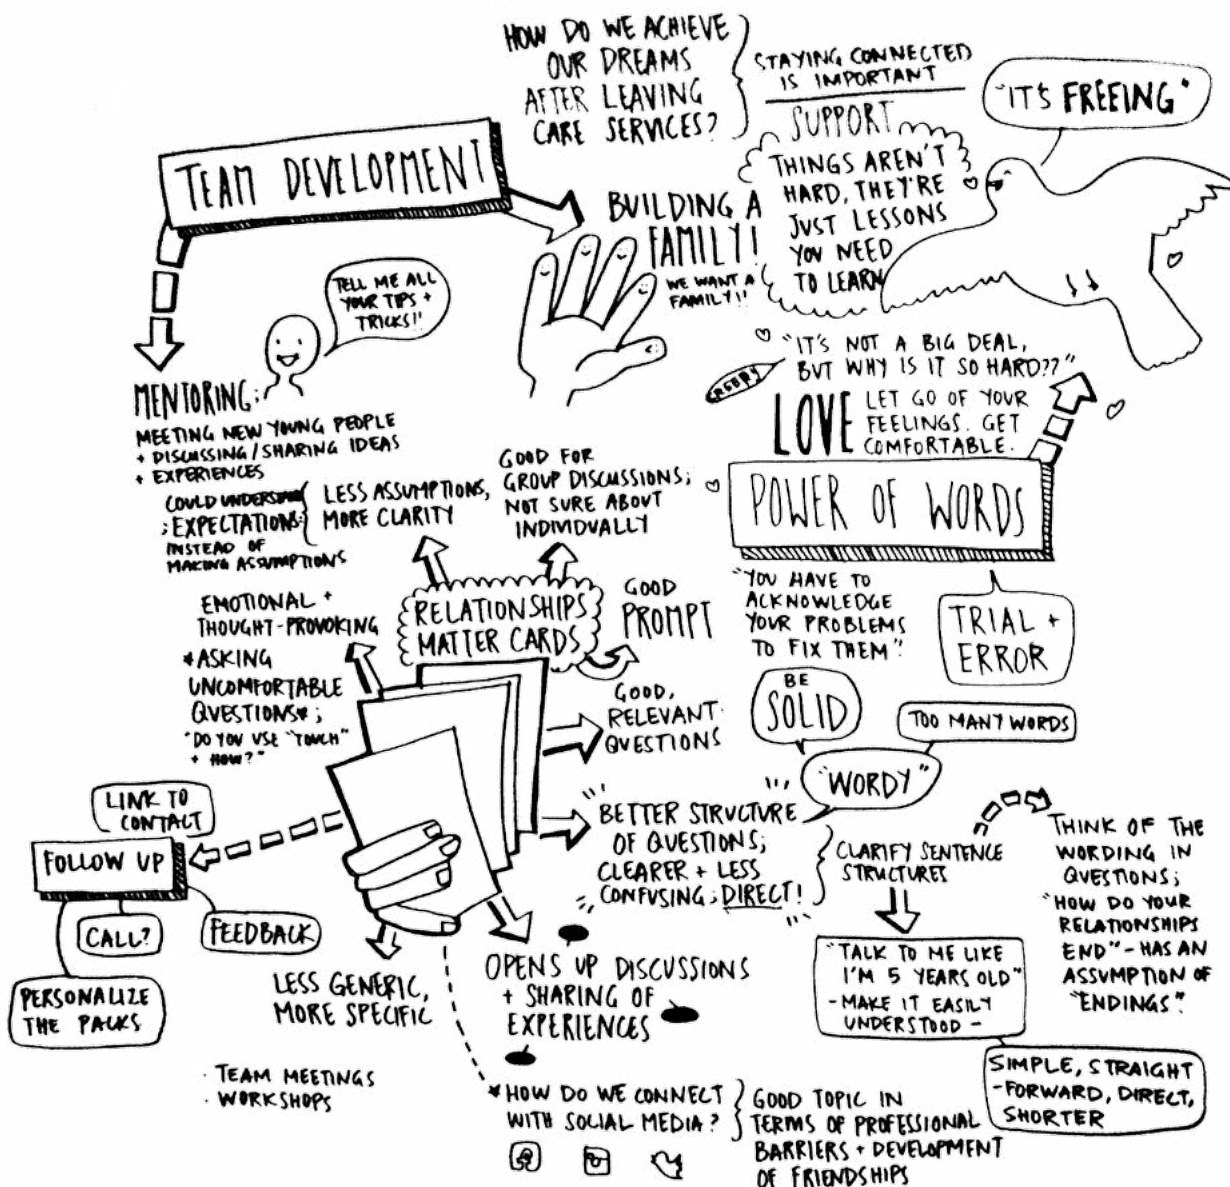 HOW DO WE ACHIEVE
OUR DREAMS
AFTER LEAVING
CARE SERVICES?
STAYING CONNECTED
IS IMPORTANT
SUPPORT
"IT'S FREEING"
THINGS AREN'T
HARD, THEY'RE
JUST LESSONS
YOU NEED
TO LEARN
TEAM DEVELOPMENT
BUILDING A
FAMILY!
WE WANT A
FAMILY!!
TELL ME ALL
YOUR TIPS +
TRICKS!!
MENTORING:
MEETING NEW YOUNG PEOPLE
+ DISCUSSING/SHARING IDEAS
+ EXPERIENCES
COULD UNDERSTAND
; EXPECTATIONS
INSTEAD OF
MAKING ASSUMPTIONS
LESS ASSUMPTIONS,
MORE CLARITY
GOOD FOR
GROUP DISCUSSIONS;
NOT SURE ABOUT
INDIVIDVALLY
"IT'S NOT A BIG DEAL,
BUT WHY IS IT SO HARD??"
LOVE
LET GO OF YOUR
FEELINGS. GET
COMFORTABLE.
POWER OF WORDS
"YOU HAVE TO
ACKNOWLEDGE
YOUR PROBLEMS
TO FIX THEM".
TRIAL +
ERROR
RELATIONSHIPS
MATTER CARDS
GOOD
PROMPT
EMOTIONAL +
THOUGHT-PROVOKING
*ASKING
UNCOMFORTABLE
QUESTIONS*;
"DO YOU USE "TOUCH"
+ HOW?"
GOOD,
RELEVANT
QUESTIONS
BE
SOLID
TOO MANY WORDS
"WORDY"
BETTER STRUCTURE
OF QUESTIONS;
CLEARER + LESS
CONFUSING; DIRECT!
CLARIFY SENTENCE
STRUCTURES
THINK OF THE
WORDING IN
QUESTIONS;
"HOW DO YOUR
RELATIONSHIPS
END" - HAS AN
ASSUMPTION OF
"ENDINGS".
"TALK TO ME LIKE
I'M 5 YEARS OLD"
- MAKE IT EASILY
UNDERSTOOD -
SIMPLE, STRAIGHT
-FORWARD, DIRECT,
SHORTER
LINK TO
CONTACT
FOLLOW UP
CALL?
FEEDBACK
PERSONALIZE
THE PACKS
LESS GENERIC,
MORE SPECIFIC
OPENS UP DISCUSSIONS
+ SHARING OF
EXPERIENCES
· TEAM MEETINGS
· WORKSHOPS
*HOW DO WE CONNECT
WITH SOCIAL MEDIA?
GOOD TOPIC IN
TERMS OF PROFESSIONAL
BARRIERS + DEVELOPMENT
OF FRIENDSHIPS